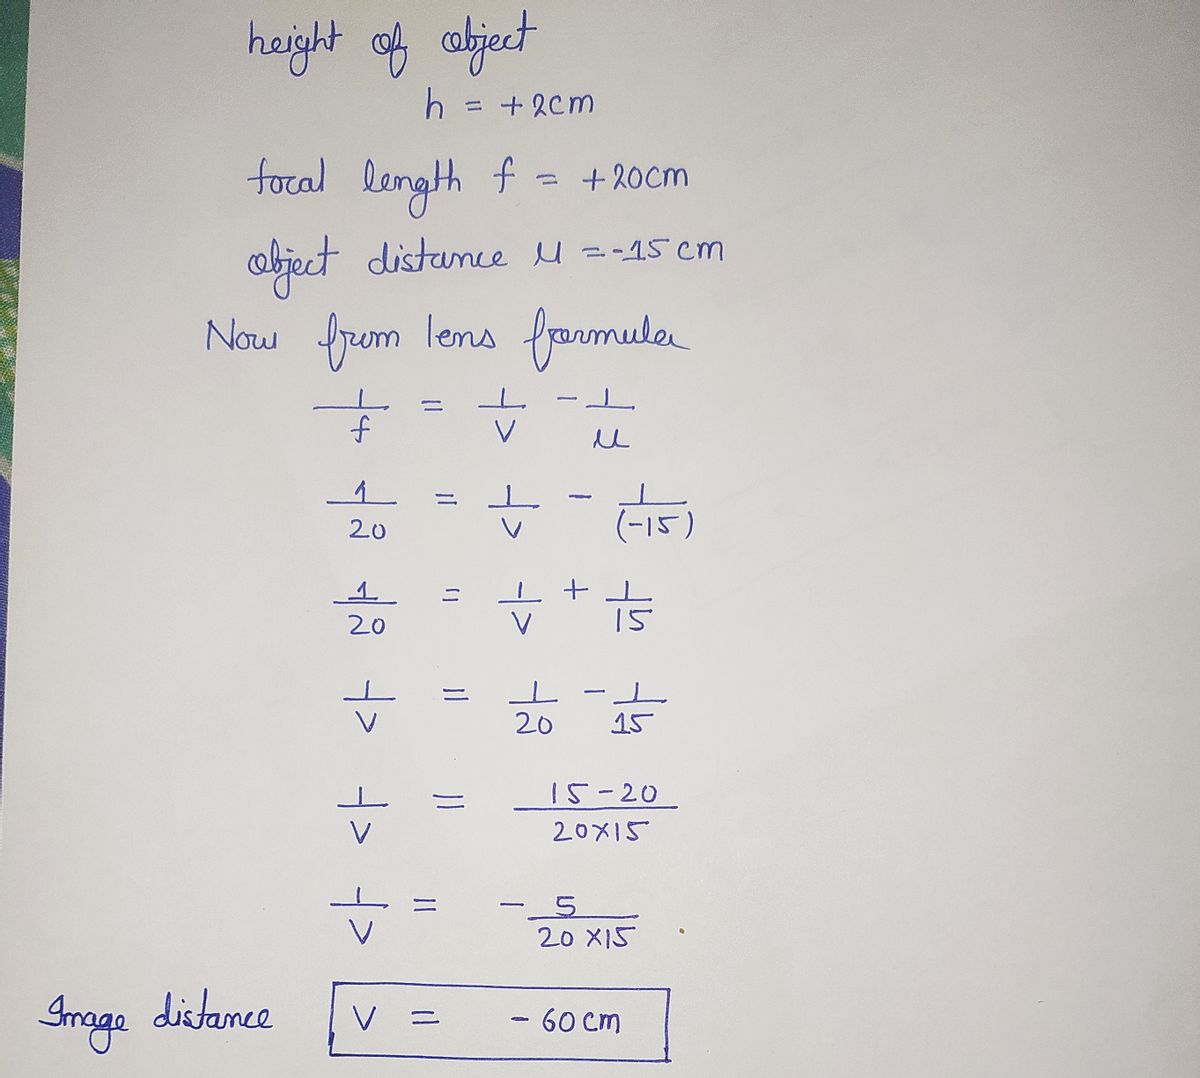 height of object
h = +2cm
focal length f = +20cm
object distance u = -15 cm
Now from lens formula
1/f = 1/v - 1/u
1/20 = 1/v - 1/(-15)
1/20 = 1/v + 1/15
1/v = 1/20 - 1/15
1/v = 15-20/20×15
1/v = - 5/20×15
Image distance v = - 60 cm